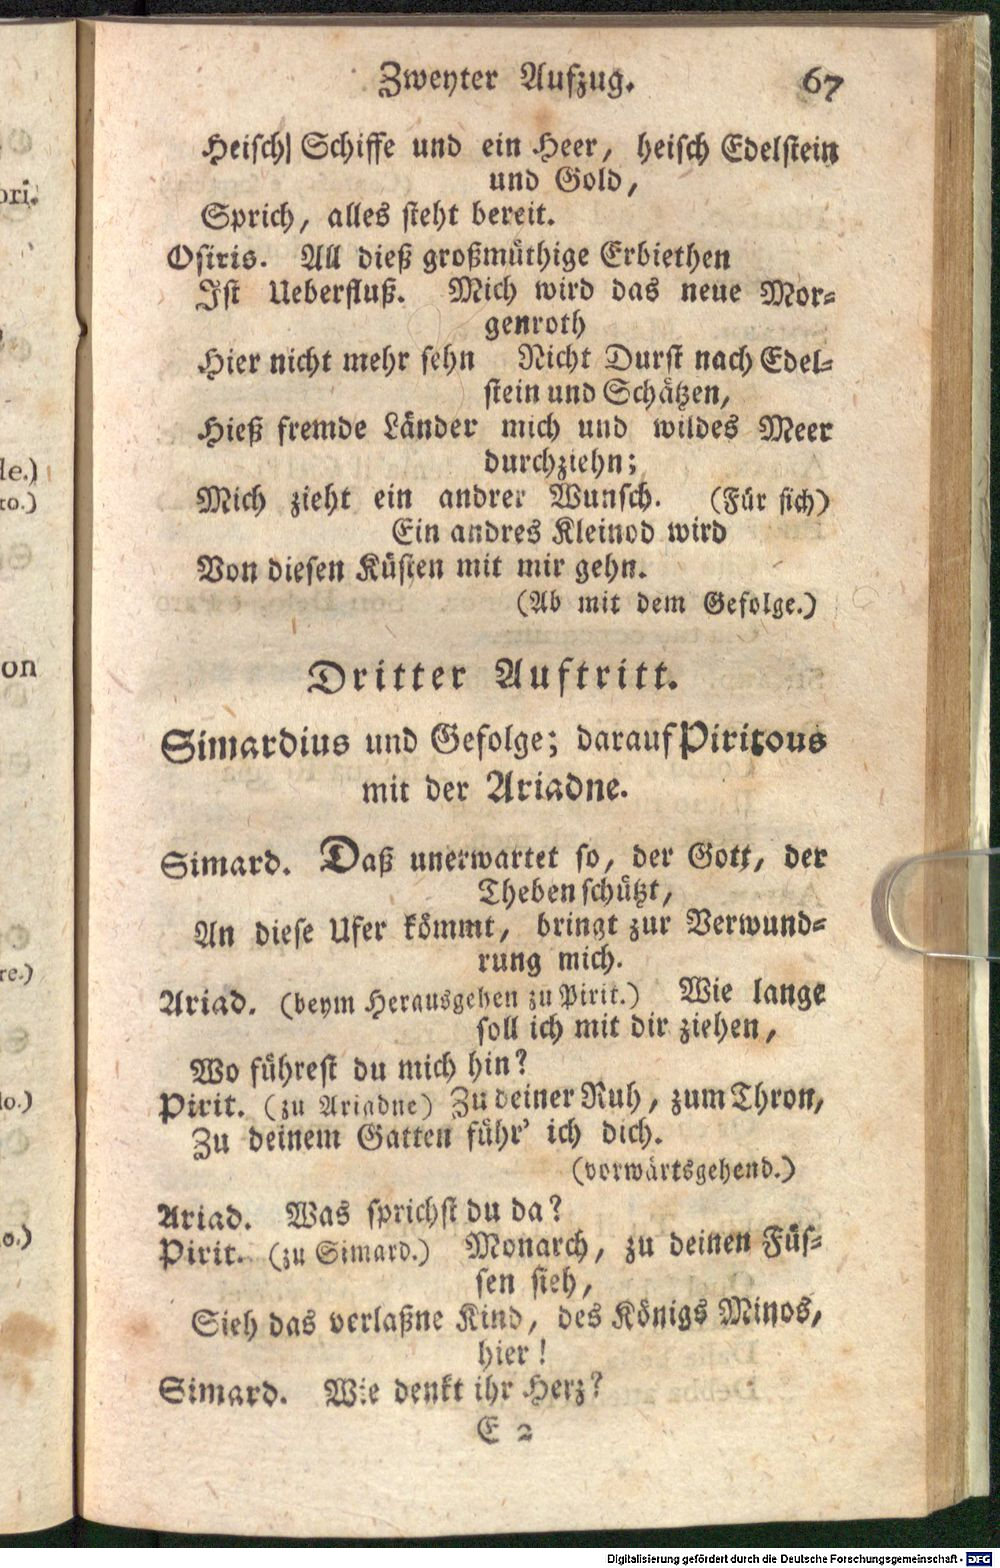 Zweyter Aufzug. 67
Heisch Schiffe und ein Heer, heisch Edelstein
und Gold,
Sprich, alles steht bereit.
Osiris. All dieß großmüthige Erbiethen
Ist Ueberfluß. Mich wird das neue Mor-
genroth
Hier nicht mehr sehn Nicht Durst nach Edel-
stein und Schätzen,
Hieß fremde Länder mich und wildes Meer
durchziehn;
Mich zieht ein andrer Wunsch. (Für sich)
Ein andres Kleinod wird
Von diesen Küsten mit mir gehn.
(Ab mit dem Gefolge.)
Dritter Auftritt.
Simardius und Gefolge; darauf Piritous
mit der Ariadne.
Simard. Daß unerwartet so, der Gott, der
Theben schützt,
An diese Ufer kömmt, bringt zur Verwund-
rung mich.
Ariad. (beym Herausgehen zu Pirit.) Wie lange
soll ich mit dir ziehen,
Wo führest du mich hin?
Pirit. (zu Ariadne) Zu deiner Ruh, zum Thron,
Zu deinem Gatten führ' ich dich.
(vorwärtsgehend.)
Ariad. Was sprichst du da?
Pirit. (zu Simard.) Monarch, zu deinen Füs-
sen sieh,
Sieh das verlaßne Kind, des Königs Minos,
hier!
Simard. Wie denkt ihr Herz?
E 2
Digitalisierung gefördert durch die Deutsche Forschungsgemeinschaft - DFG